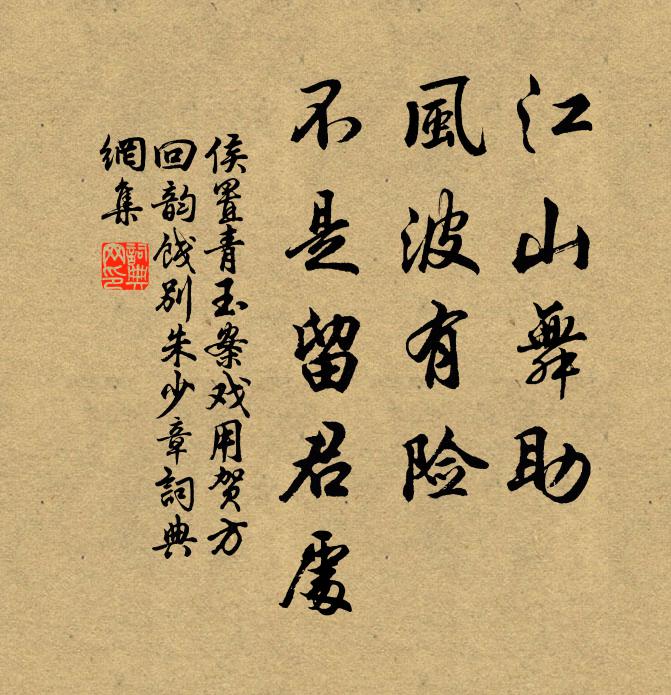 江山舞助
風波有险
不是留君處
侯置青玉案戏用贺方
回韵饯别朱少章詞典
網集
詞典网印